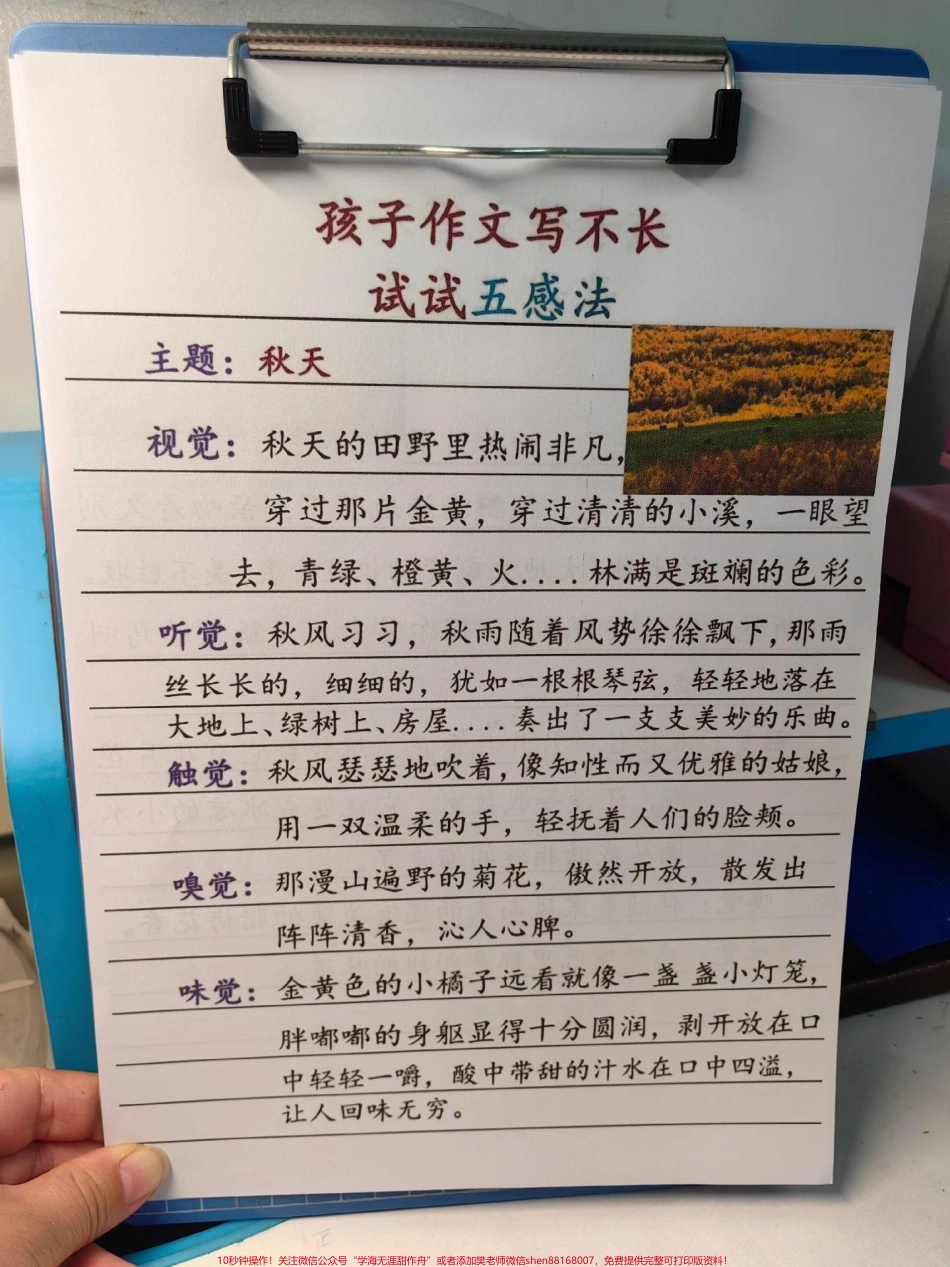 孩子作文写不长
试试五感法
主题：秋天
视觉：秋天的田野里热闹非凡，
穿过那片金黄，穿过清清的小溪，一眼望
去，青绿、橙黄、火....林满是斑斓的色彩。
听觉：秋风习习，秋雨随着风势徐徐飘下，那雨
丝长长的，细细的，犹如一根根琴弦，轻轻地落在
大地上、绿树上、房屋....奏出了一支支美妙的乐曲。
触觉：秋风瑟瑟地吹着，像知性而又优雅的姑娘，
用一双温柔的手，轻抚着人们的脸颊。
嗅觉：那漫山遍野的菊花，傲然开放，散发出
阵阵清香，沁人心脾。
味觉：金黄色的小橘子远看就像一盏 盏小灯笼，
胖嘟嘟的身躯显得十分圆润，剥开放在口
中轻轻一嚼，酸中带甜的汁水在口中四溢，
让人回味无穷。
10秒钟操作！关注微信公众号“学海无涯甜作舟”或者添加樊老师微信shen88168007，免费提供完整可打印版资料！